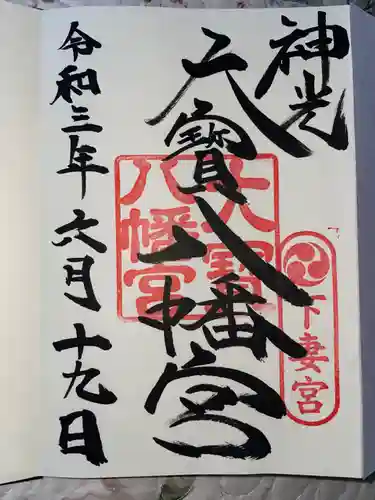 神光
大寶八幡宮
令和三年六月十九日
大寶
八幡宮
下妻宮